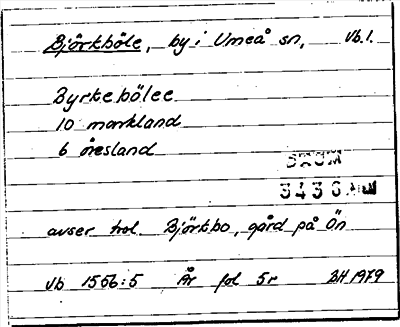 Björkböle, by i Umeå sn, Vb.l.
Byrkebölee
10 markland
6 öresland
avser trol. Björkbo, gård på Ön
Vb 1556:5 År fol 5r BH 1979